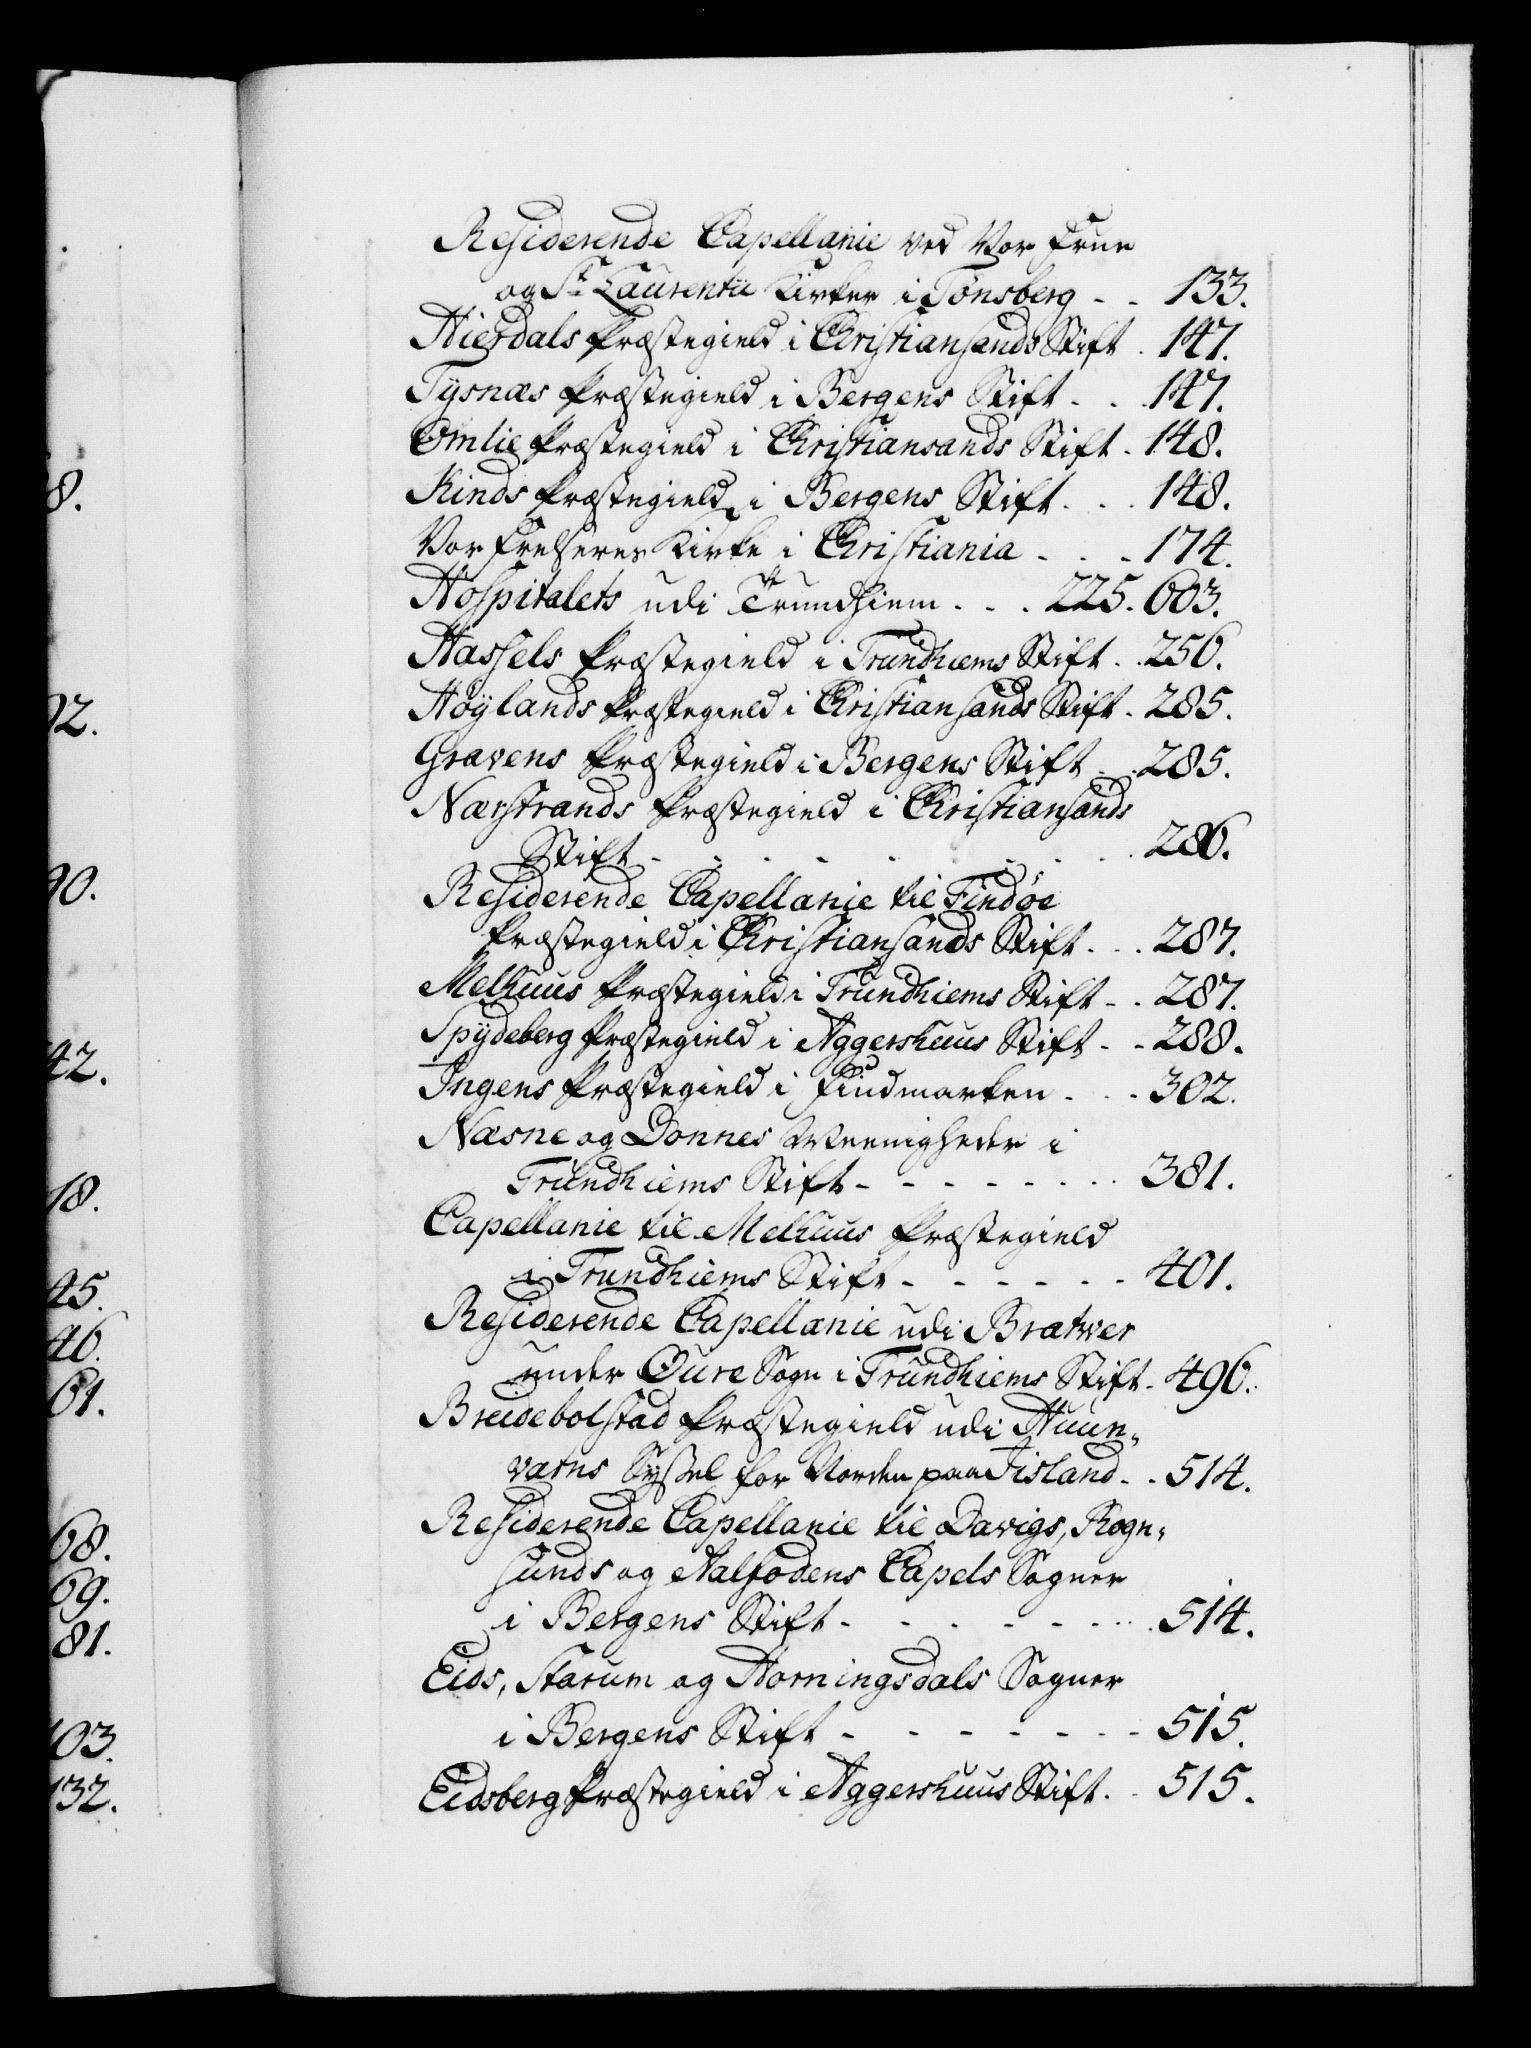 Residerende Capellanie ved Vor Frue
og St Laurentii Kirker i Tønsberg - - 133.
Hierdals Præstegield i Christiansands Stift . 147.
Tysnæs Præstegield i Bergens Stift - . . 147.
Omlie Præstegield i Christiansands Stift . 148.
Kinds Præstegield i Bergens Stift . . . 148.
Vor Frelseres Kirke i Christiania - . - 174.
Hospitalets udi Trundhiem . . . 225. 603.
Hassels Præstegield i Trundhiems Stift . . 256.
Høylands Præstegield i Christiansands Stift . 285.
Gravens Præstegield i Bergens Stift - . 285.
Nærstrands Præstegield i Christiansands
Stift - - - - - - - - . 286.
Residerende Capellanie til Findøe
Præstegield i Christiansands Stift . . . 287.
Melhuus Præstegield i Trundhiems Stift - . 287.
Spydeberg Præstegield i Aggershuus Stift - - 288.
Ingens Præstegield i Findmarken . . . 302.
Næsne og Donnes Meenigheder i
Trundhiems Stift - - - - - . . . 381.
Capellanie til Melhuus Præstegield
i Trundhiems Stift - - - - - - 401.
Residerende Capellanie udi Brætver
under Oure Sogn i Trundhiems Stift . 496.
Breidebolstad Præstegield udi Huun-
vatns Syssel for Norden paa Iisland . . 514.
Residerende Capellanie til Davigs, Rogn-
sunds og Aalfodens Capels Sogner
i Bergens Stift - - - - - - . . 514.
Eids, Starum og Horningsdals Sogner
i Bergens Stift - - - - - - - 515.
Eidsberg Præstegield i Aggershuus Stift . . 515.
8.
92.
90.
42.
18.
45.
46.
61.
68.
69.
81.
103.
132.